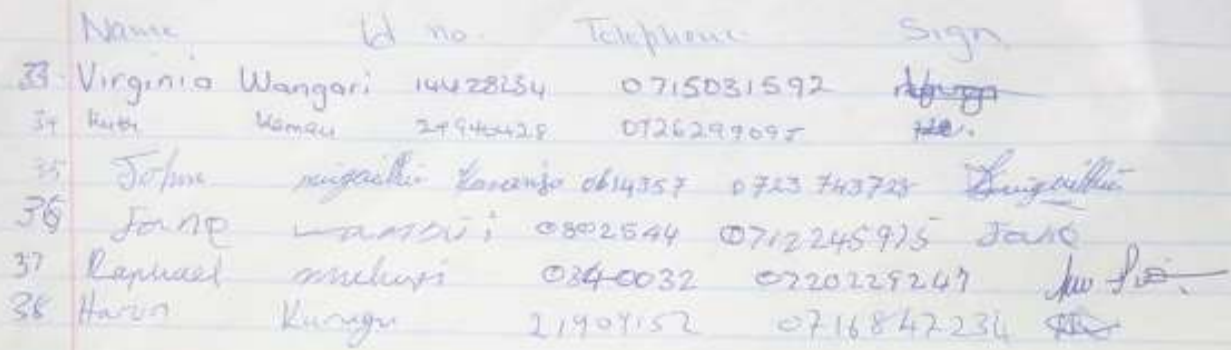 Name Id no. Telephone Sign
33 Virginia Wangari 14428234 0715031592
34 Ruth Kamau 0726299095
35 John Karanja 0614357 0723743725
36 Jane wambui 0802544 0712245925 Jane
37 Raphael 0340032 0720229247
38 Harun Kungu 21909152 0716842234